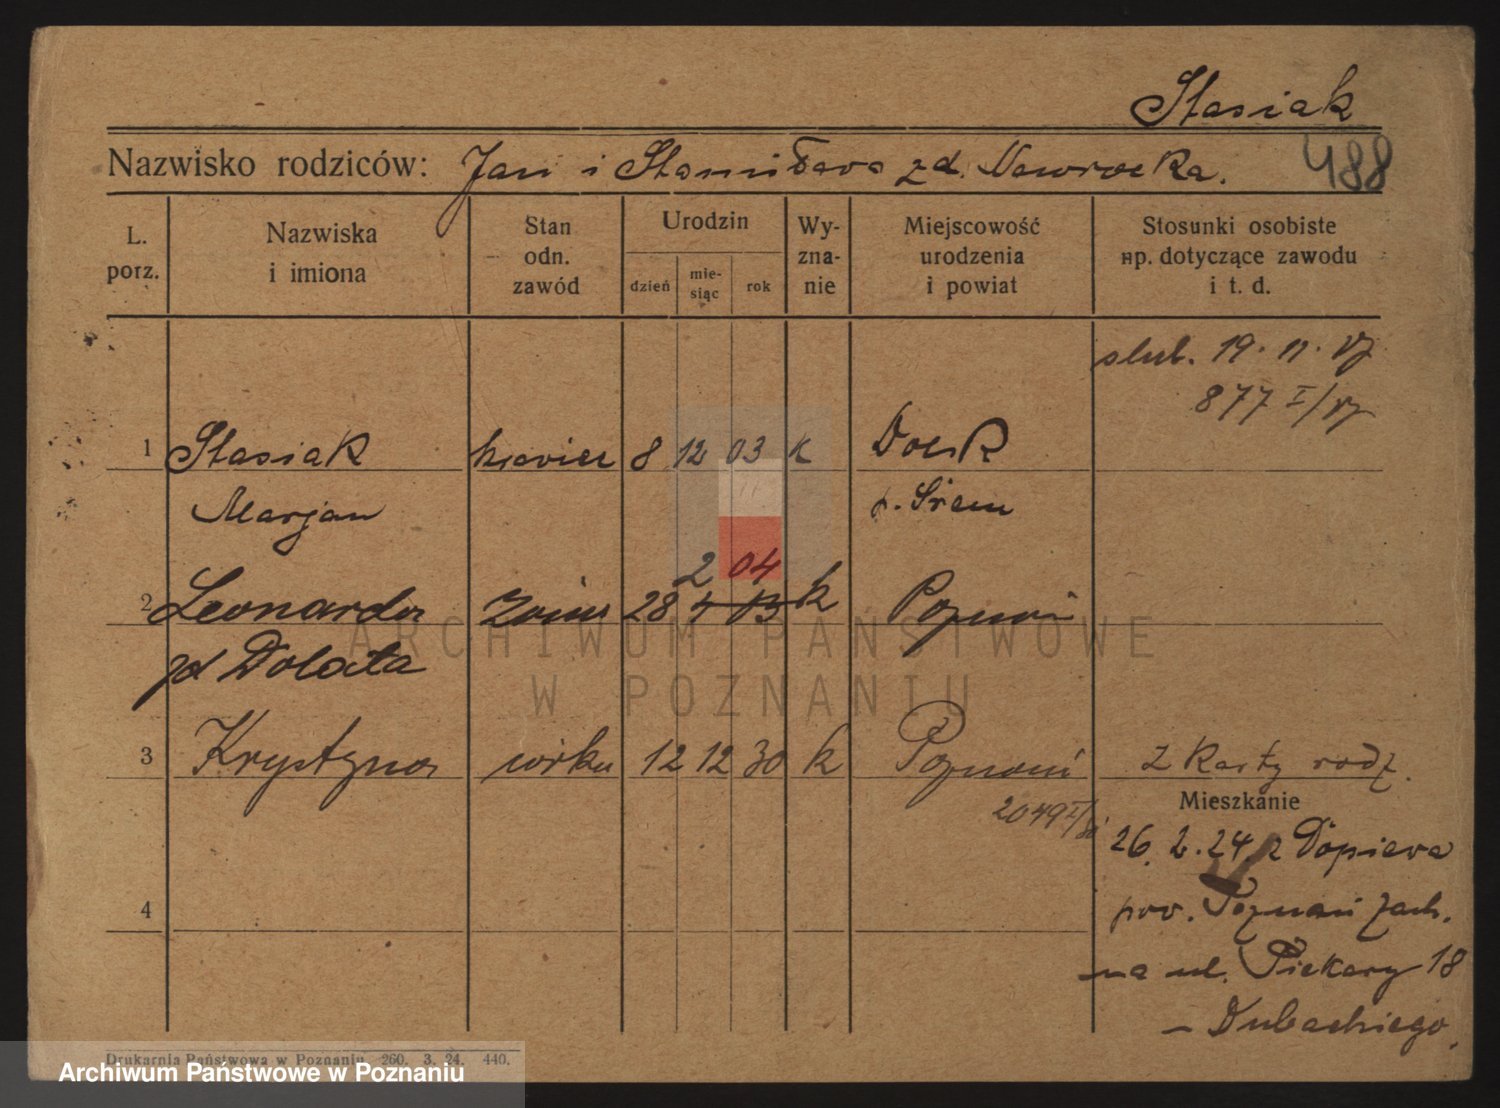 Stasiak
Nazwisko rodziców: Jan i Stanisława zd. Nawrocka.
488
L. porz.
Nazwiska i imiona
Stan odn. zawód
Urodzin
dzień
mie-siąc
rok
Wy-zna-nie
Miejscowość urodzenia i powiat
Stosunki osobiste np. dotyczące zawodu i t. d.
ślub. 19. 11. 27
877 I/27
1 Stasiak krawiec 8 12 03 k Dolsk
Marjan p. Śrem
2 04
2 Leonarda żona 28 4 03 k Poznań
zd Dolata
3 Krystyna córka 12 12 30 k Poznań z karty rodz.
2049 I/
Mieszkanie
26. 2. 24 z Dopiewa
pow. Poznań zach.
4
na ul. Piekary 18
– Dubackiego.
Drukarnia Państwowa w Poznaniu 260. 3. 24. 440.
ARCHIWUM PAŃSTWOWE
W POZNANIU
Archiwum Państwowe w Poznaniu